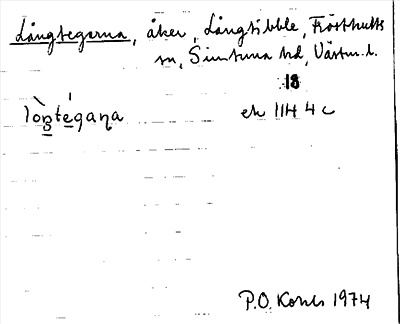 Långtegarna, åker, Långtibble, Frösthults
sn, Simtuna hd, Västm. l.
18
lòŋtégaṇa
ek 11H 4c
P.O. 1974